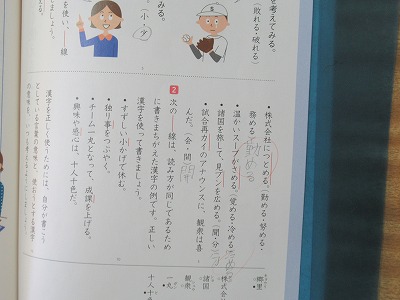 を考えてみる。
(敗れる・破れる)
みる。
(小・少)
を使い、
線
ましょう。
・株式会社につとめる。(勤める・努める・
務める) 勤める
・温かいスープがさめる。(覚める・冷める) 冷める
・諸国を旅して、見ブンを広める。(聞・分)
・試合再カイのアナウンスに、観衆は喜
んだ。(会・開) 開
2 次の――線は、読み方が同じであるため
に書きまちがえた漢字の例です。正しい
漢字を使って書きましょう。
・すずしい小かげで休む。
・独り事をつぶやく。
・チーム一丸となって、成課を上げる。
・興味や感心は、十人十色だ。
漢字を正しく使うためには、自分が書こう
としている言葉の意味と、使おうとする漢字
の意味を
郷里
株式会
諸国
一丸
十人十